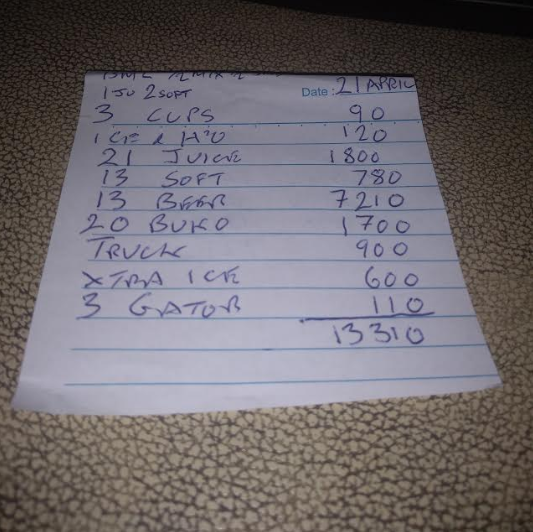 1JU 2SOFT Date: 21 APRIL
3 CUPS 90
ICE & H²O 120
21 JUICE 1800
13 SOFT 780
13 BEER 7210
20 BUKO 1700
TRUCK 900
XTRA ICE 600
3 GATOR 110
13310